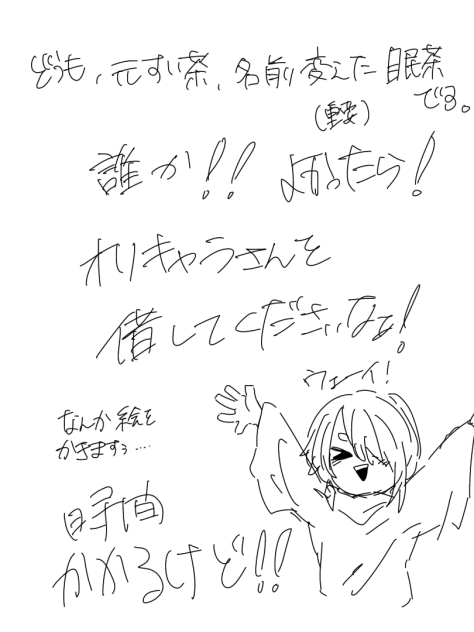 どうも、元すい茶、名前変えた眠茶
です。
(重要)
誰か!! よかったら!
オリキャラさんを
借してくださいなぁ!
ウェーイ!
なんか絵を
かきますぅ....
時間
かかるけど!!